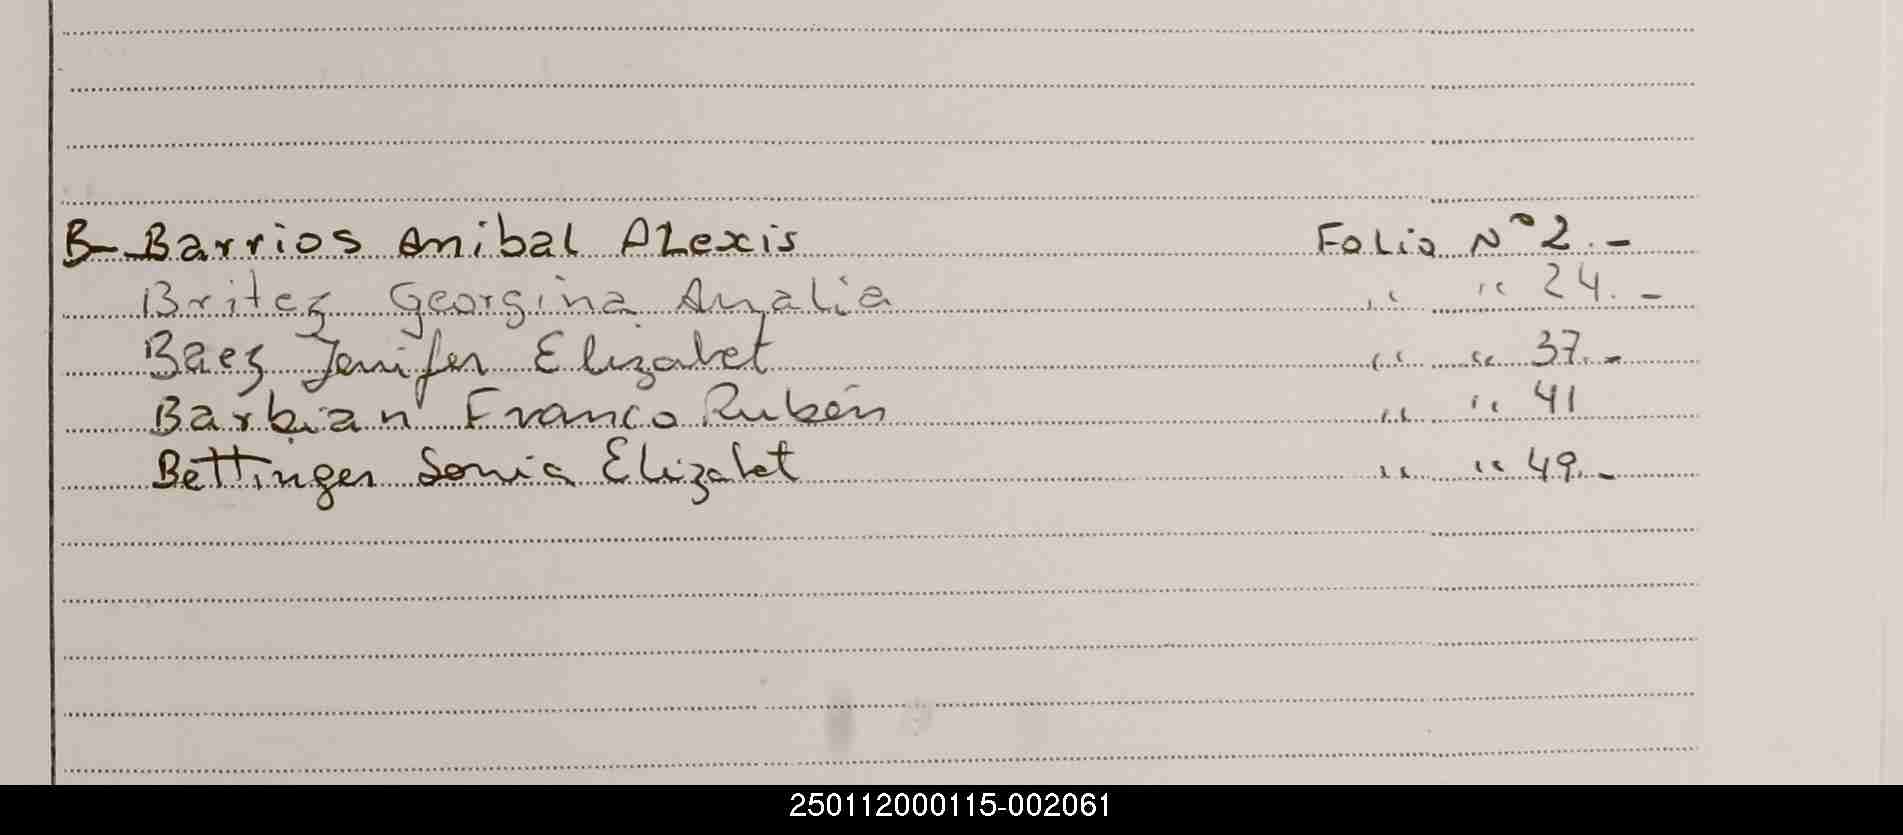 B- Barrios Anibal Alexis Folio Nº 2.-
Britez Georgina Analia " " 24.-
Baez Jenifer Elizabet " " 37.-
Barbian Franco Rubén " " 41
Bettinger Sonia Elizabet " " 49.-
250112000115-002061